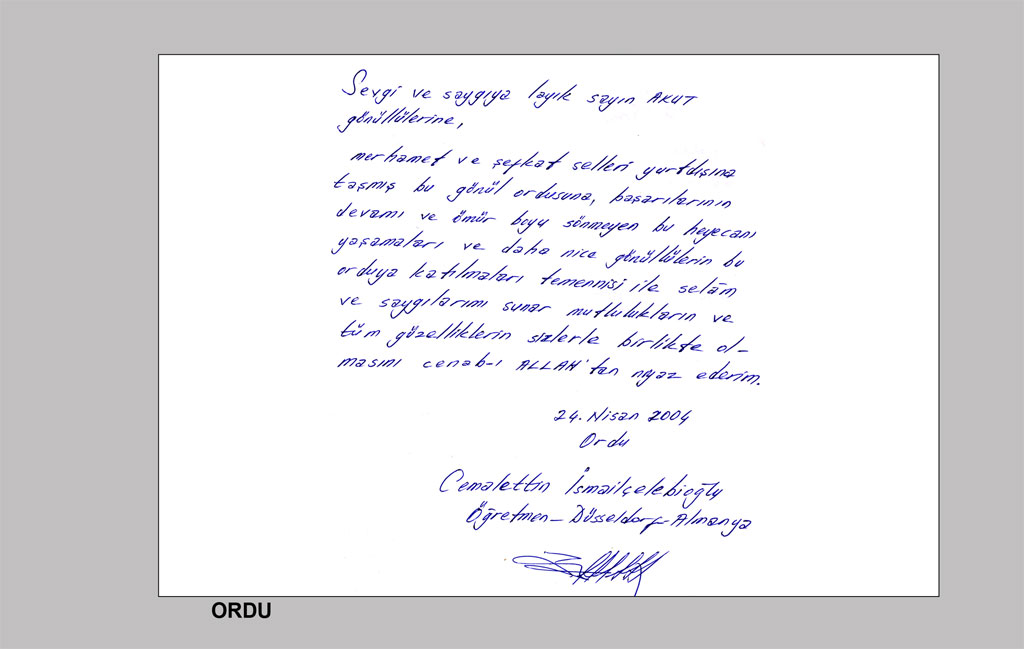 Sevgi ve saygıya layık sayın AKUT
gönüllülerine,
merhamet ve şefkat selleri yurtdışına
taşmış bu gönül ordusuna, başarılarının
devamı ve ömür boyu sönmeyen bu heyecanı
yaşamaları ve daha nice gönüllülerin bu
orduya katılmaları temennisi ile selâm
ve saygılarımı sunar mutlulukların ve
tüm güzelliklerin sizlerle birlikte ol-
masını cenab-ı ALLAH'tan niyaz ederim.
24. Nisan 2004
Ordu
Cemalettin İsmailçelebioğlu
Öğretmen - Düsseldorf - Almanya
ORDU